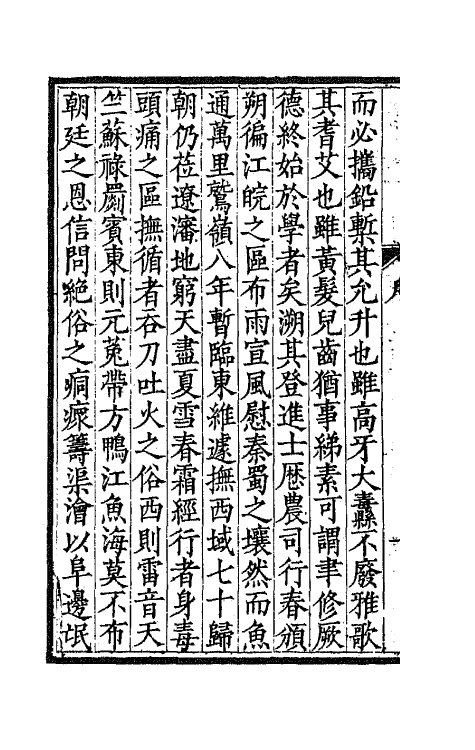 而必攜鉛槧其允升也雖高牙大纛縣不廢雅歌
其耆艾也雖黃髮兒齒猶事綈素可謂聿修厥
德終始於學者矣溯其登進士歷農司行春頒
朔徧江皖之區布雨宣風慰秦蜀之壤然而魚
通萬里鷲嶺八年暫臨東維遽撫西域七十歸
朝仍莅遼瀋地窮天盡夏雪春霜經行者身毒
頭痛之區撫循者吞刀吐火之俗西則雷音天
竺蘇祿罽賓東則元菟帶方鴨江魚海莫不布
朝廷之恩信問絕俗之痌瘝籌渠澮以阜邊氓